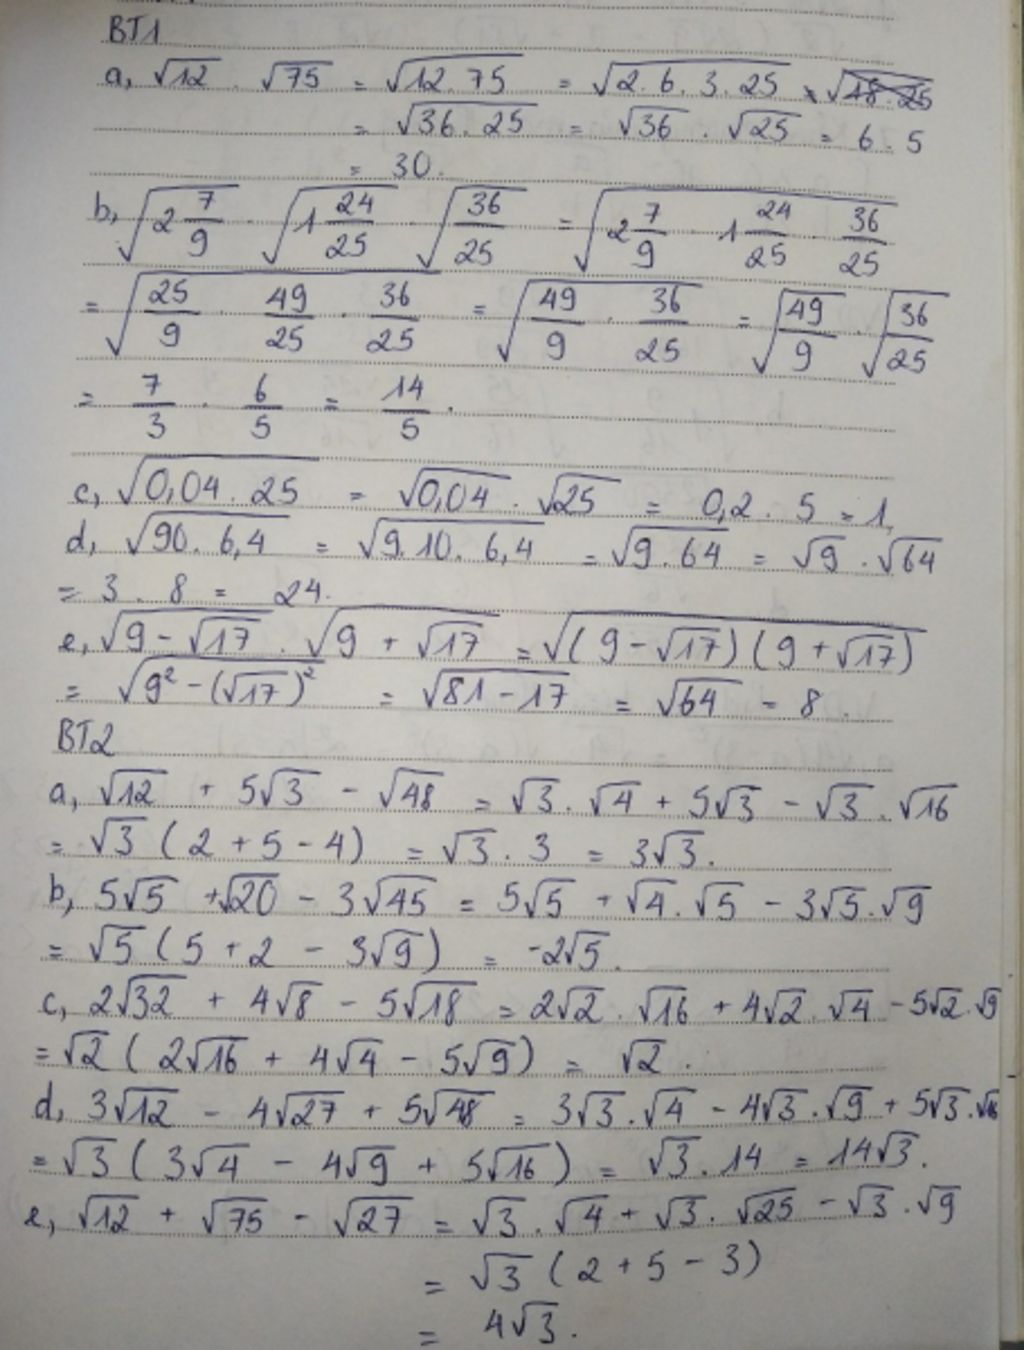 BT1
a, √12 . √75 = √(12.75) = √(2.6.3.25)
= √(36.25) = √36 . √25 = 6.5
= 30.
b, √(2 7/9) . √(1 24/25) . √(36/25) = √(2 7/9 . 1 24/25 . 36/25)
= √(25/9 . 49/25 . 36/25) = √(49/9 . 36/25) = √(49/9) . √(36/25)
= 7/3 . 6/5 = 14/5.
c, √(0,04.25) = √0,04 . √25 = 0,2.5 = 1,
d, √(90.6,4) = √(9.10.6,4) = √(9.64) = √9 . √64
= 3.8 = 24.
e, √(9 - √17) . √(9 + √17) = √((9 - √17)(9 + √17))
= √(9² - (√17)²) = √(81 - 17) = √64 = 8.
BT2
a, √12 + 5√3 - √48 = √3 . √4 + 5√3 - √3 . √16
= √3 (2 + 5 - 4) = √3 . 3 = 3√3.
b, 5√5 + √20 - 3√45 = 5√5 + √4 . √5 - 3√5 . √9
= √5 (5 + 2 - 3√9) = -2√5.
c, 2√32 + 4√8 - 5√18 = 2√2 . √16 + 4√2 . √4 - 5√2 . √9
= √2 (2√16 + 4√4 - 5√9) = √2.
d, 3√12 - 4√27 + 5√48 = 3√3 . √4 - 4√3 . √9 + 5√3 . √16
= √3 (3√4 - 4√9 + 5√16) = √3 . 14 = 14√3.
e, √12 + √75 - √27 = √3 . √4 + √3 . √25 - √3 . √9
= √3 (2 + 5 - 3)
= 4√3.